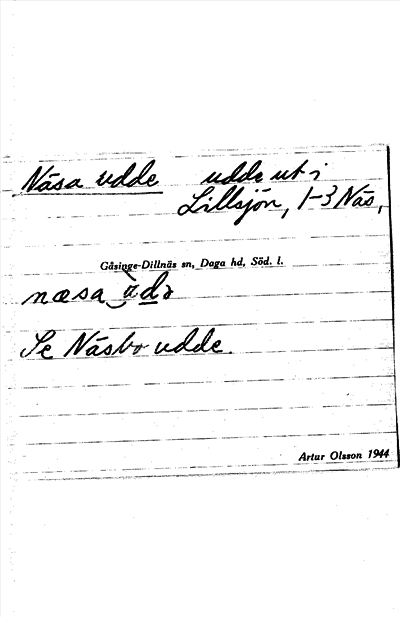 Näsa udde udde ut i
Lillsjön, 1-3 Näs,
Gåsinge-Dillnäs sn, Daga hd, Söd. l.
næsa
Se Näsbo udde.
Artur Olsson 1944